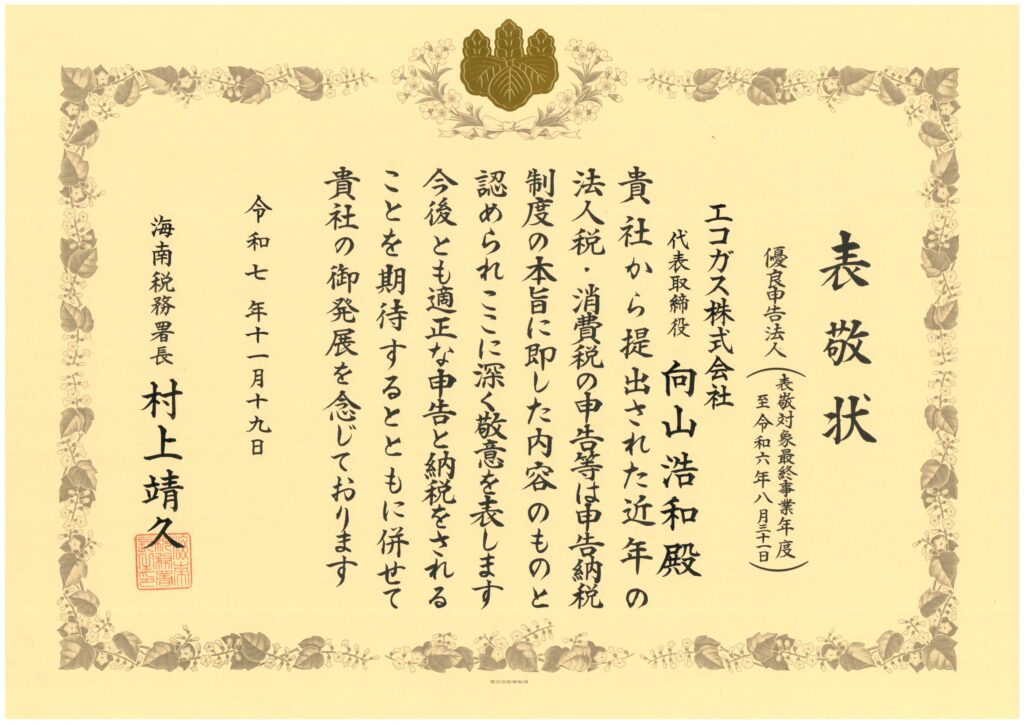 表敬状
優良申告法人
(表敬対象最終事業年度
至令和六年八月三十一日)
エコガス株式会社
代表取締役 向山浩和殿
貴社から提出された近年の
法人税・消費税の申告等は申告納税
制度の本旨に即した内容のものと
認められここに深く敬意を表します
今後とも適正な申告と納税をされる
ことを期待するとともに併せて
貴社の御発展を念じております
令和七年十一月十九日
海南税務署長 村上靖久